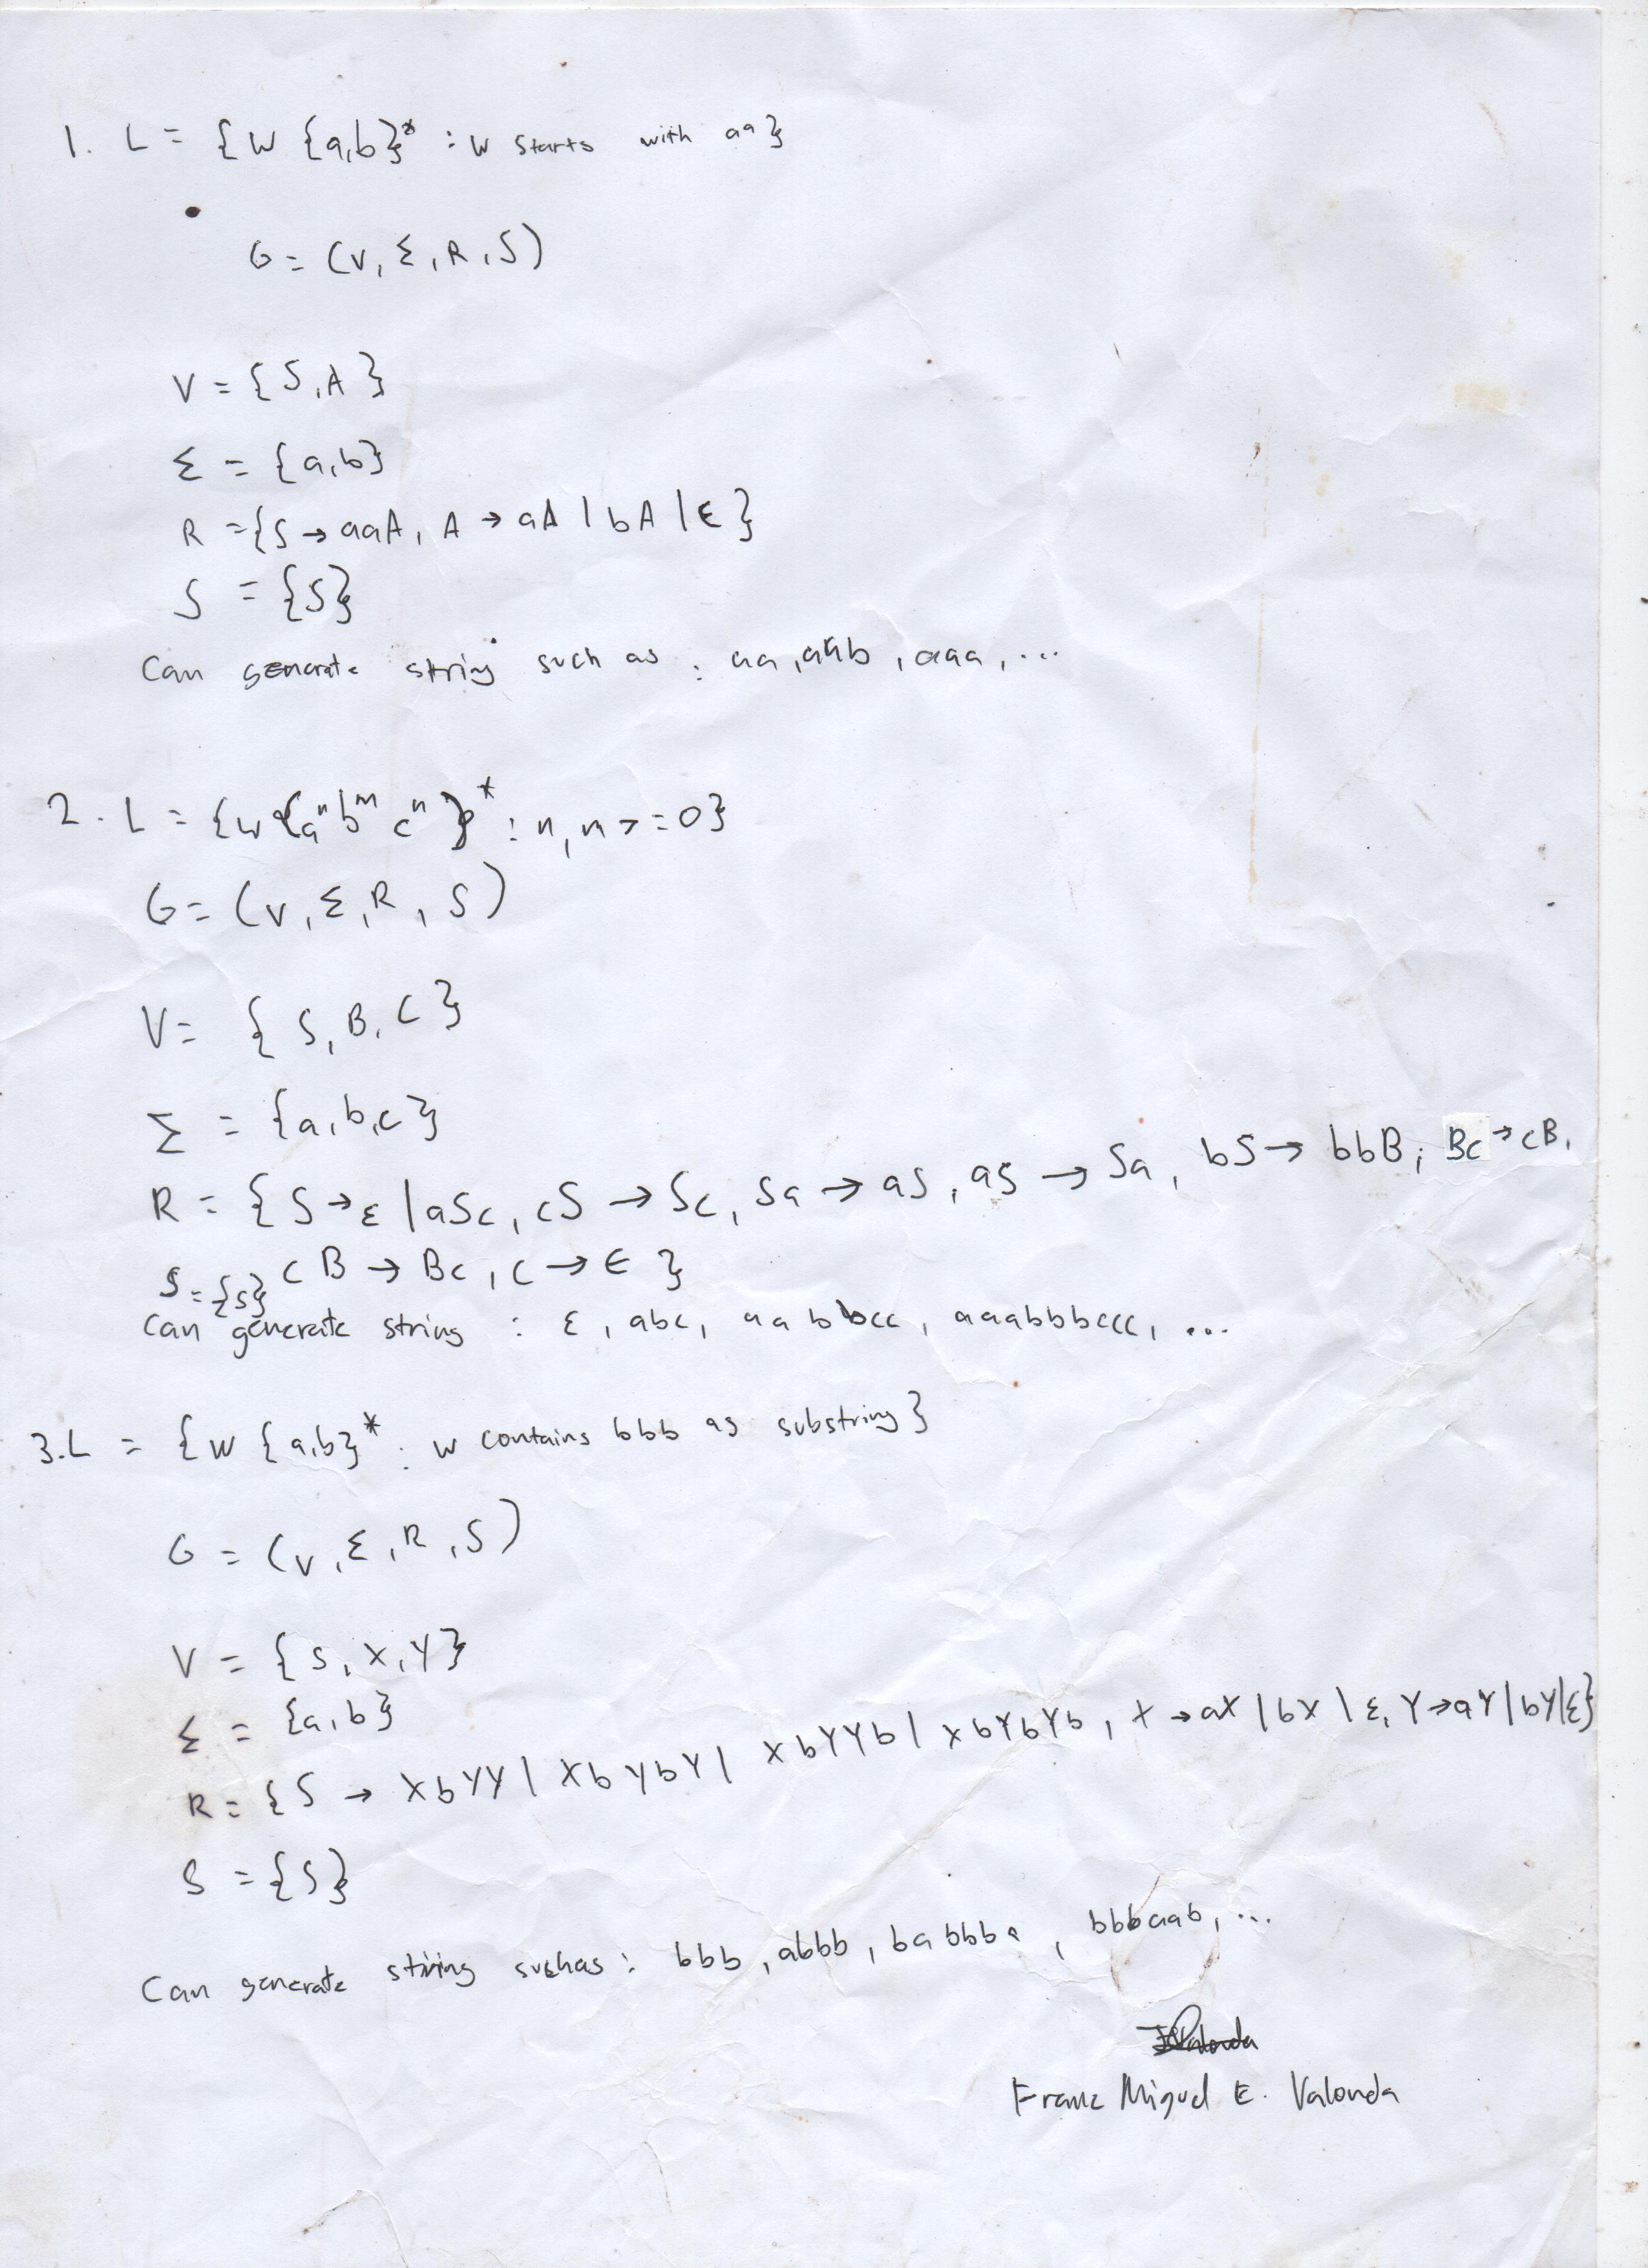 1. L = {w {a,b}* : w starts with aa}
G = (V, Σ, R, S)
V = {S, A}
Σ = {a,b}
R = {S → aaA, A → aA | bA | ε}
S = {S}
Can generate string such as : aa, aab, aaa, ...
2. L = {w {aⁿbᵐcⁿ}* : n, m >= 0}
G = (V, Σ, R, S)
V = {S, B, C}
Σ = {a,b,c}
R = {S → ε | aSc, cS → Sc, Sa → aS, aS → Sa, bS → bbB; Bc → cB,
cB → Bc, c → ε }
S = {S}
Can generate string : ε, abc, aabbcc, aaabbbccc, ...
3. L = {w {a,b}* : w contains bbb as substring}
G = (V, Σ, R, S)
V = {S, X, Y}
Σ = {a,b}
R = {S → XbYY | XbYbY | XbYYb | XbYbYb, X → aX | bX | ε, Y → aY | bY | ε}
S = {S}
Can generate string suchas : bbb, abbb, babbba, bbbaab, ...
Franz Miguel E. Valonda